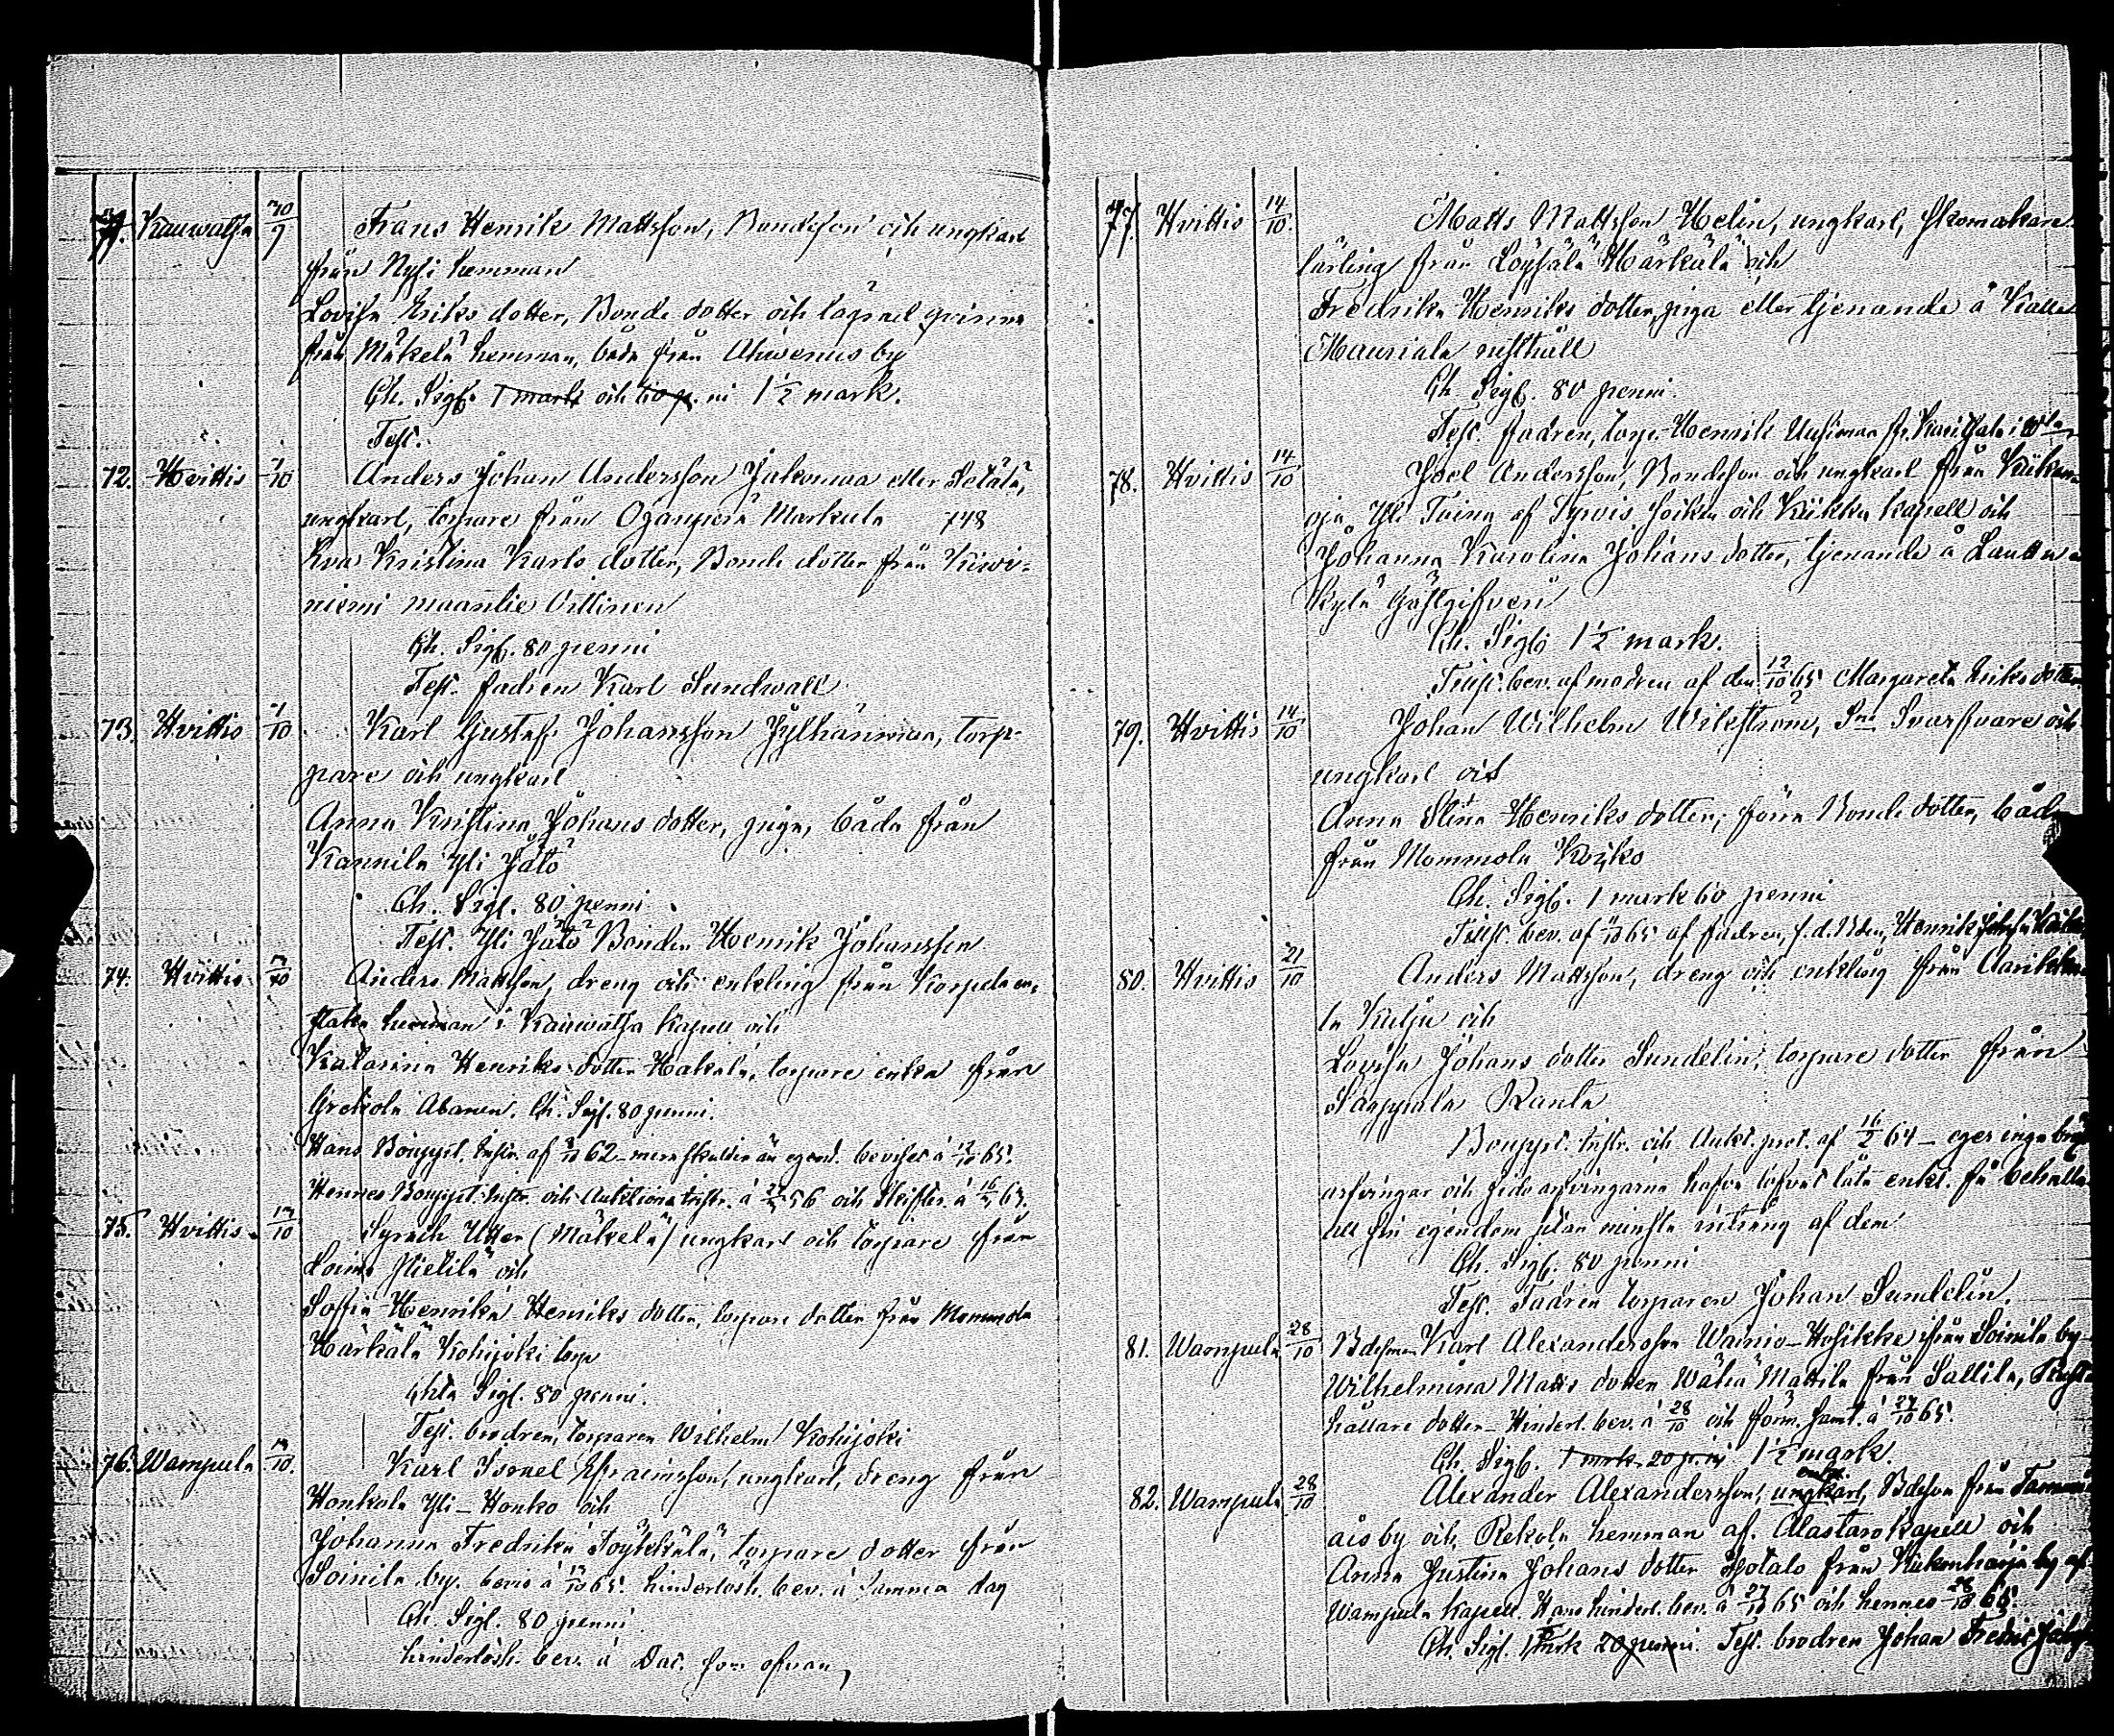 71. Kauwatsa 30/9 Frans Henrik Mattsson, Bondeson och ungkarl
från Nysi hemman
Lovisa Eriks dotter, Bonde dotter och qvinna
från Mäkelä hemman, båda från Ahwenus by
Ch. Sigl. 1 mark och 60 p. ni 1 1/2 mark.
Test.
72. Hvittis 7/10 Anders Johan Andersson Jakomaa eller Setälä,
ungkarl, torpare från Markula 748
Eva Kristina Karls dotter, Bonde dotter från Kiwi-
niemi Oittinen
Ch. Sigl. 80 penni
Test. fadren Karl Sundwall
73. Hvittis 7/10 Karl Gustaf Johansson Jylhänmaa, torp-
pare och ungkarl
Anna Kristina Johans dotter, piga, båda från
Karmila Yli Jätö
Ch. Sigl. 80 penni
Test. Yli Jätö Bonden Henrik Johansson
74. Hvittis 7/10 Anders Mattsson, dreng och enkling från Korpela en-
staka hemman i Kauwatsa kapell och
Katarina Henriks dotter Hakala, torpare enka från
Ch. Sigl. 80 penni.
Hans Bouppt. Instr. af 8/10 62 mera skulder än egend. beviset á 65.
Hennes Bouppt. Instr. och Auktions instr. á 56 och á 63.
75. Hvittis 14/10 Syrach Utter (Mäkelä) ungkarl och torpare från
Loima Hietila och
Soffia Henrika Henriks dotter, torpare dotter från Mommola
Härkälä Kohijoki torp
Chta Sigl. 80 penni.
Test. brodren, torparen Wilhelm Kohijoki
76. Wampula 14/10. Karl Israel Efraimsson, ungkarl, dreng från
Honkola Yli-Honko och
Johanna Fredrika Söykkälä, torpare dotter från
Soinila by. bevis á 13/10 65. hinderlösh. bev. á samma dag
Ch. Sigl. 80 penni
hinderlösh. bev. á Dat. som ofvan,
77. Hvittis 14/10. Matts Mattsson Helin, ungkarl, skomakare
lärling från Löysälä Härkälä och
Fredrika Henriks dotter, piga eller tjenande á Kalle
Mauriala rusthåll
Ch. Sigl. 80 penni.
Test. fadren, torp. Henrik Uusimaa fr.
78. Hvittis 14/10 Joel Andersson, Bondeson och ungkarl från
Yli Tuina af Tyrvis socken och Kiikka kapell och
Johanna Karolina Johans dotter, tjenande å Lautta-
kylä Gästgifveri
Ch. Sigl. 1 1/2 mark.
bev. af modren af den 12/10 65 Margareta Eriks dotter
79. Hvittis 14/10 Johan Wilhelm Wilström, Svarfvare och
ungkarl och
Anna Stina Henriks dotter, förra Bonde dotter, båda
från Mommola Koijko
Ch. Sigl. 1 mark 60 penni
bev. af 11/10 65 af fadren, f.d. Bden, Henrik
80. Hvittis 21/10 Anders Mattsson, dreng och enkling från
la Kulju och
Lovisa Johans dotter Sundelin, torpare dotter från
Sarppala Ranta
Bouppt. instr. och Aukt. prot. af 16/2 64 - eger inga bröst
arfvingar och sido arfvingarna hafva lofvat låta enkl. få behålla
all sin egendom utan minsta intrång af dem
Ch. Sigl. 80 penni
Test. Fadren torparen Johan Sundelin.
81. Wampula 28/10 Bdesonen Karl Alexandersson Wainio-Hosikka ifrån Soinila by
Wilhelmina Matts dotter Wähä Mattila från Sallila, Rust-
hållare dotter Hinderl. bev. á 28/10 och förm. samt. á 27/10 65.
Ch. Sigl. 1 mrk. 20 p. ni 1 1/2 mark.
82. Wampula 28/10 Alexander Alexandersson, ungkarl, Bdeson från
ais by och Rekola hemman af Alastaro kapell och
Anna Justina Johans dotter Isotalo från Kukonharja by af
Wampula kapell. Hans hinderl. bev. á 27/10 65 och hennes 28/10 65.
Ch. Sigl. 1 mrk 20 penni. Test. brodren Johan Fredric